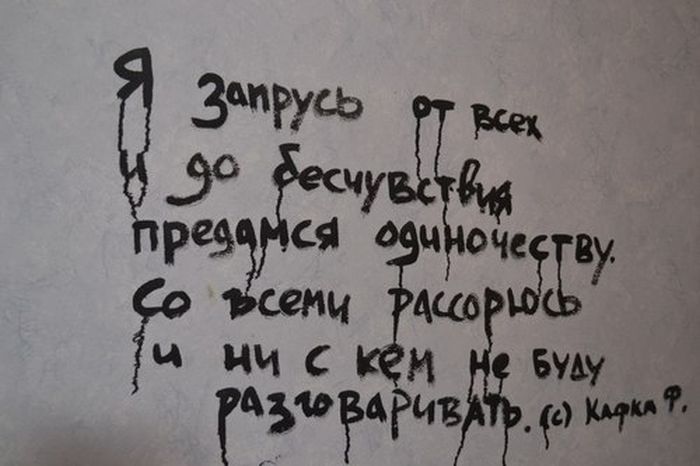 Я Запрусь от всех
и до бесчувствия
предамся одиночеству.
Со всеми рассорюсь
и ни с кем не буду
разговаривать. (с) Кафка Ф.